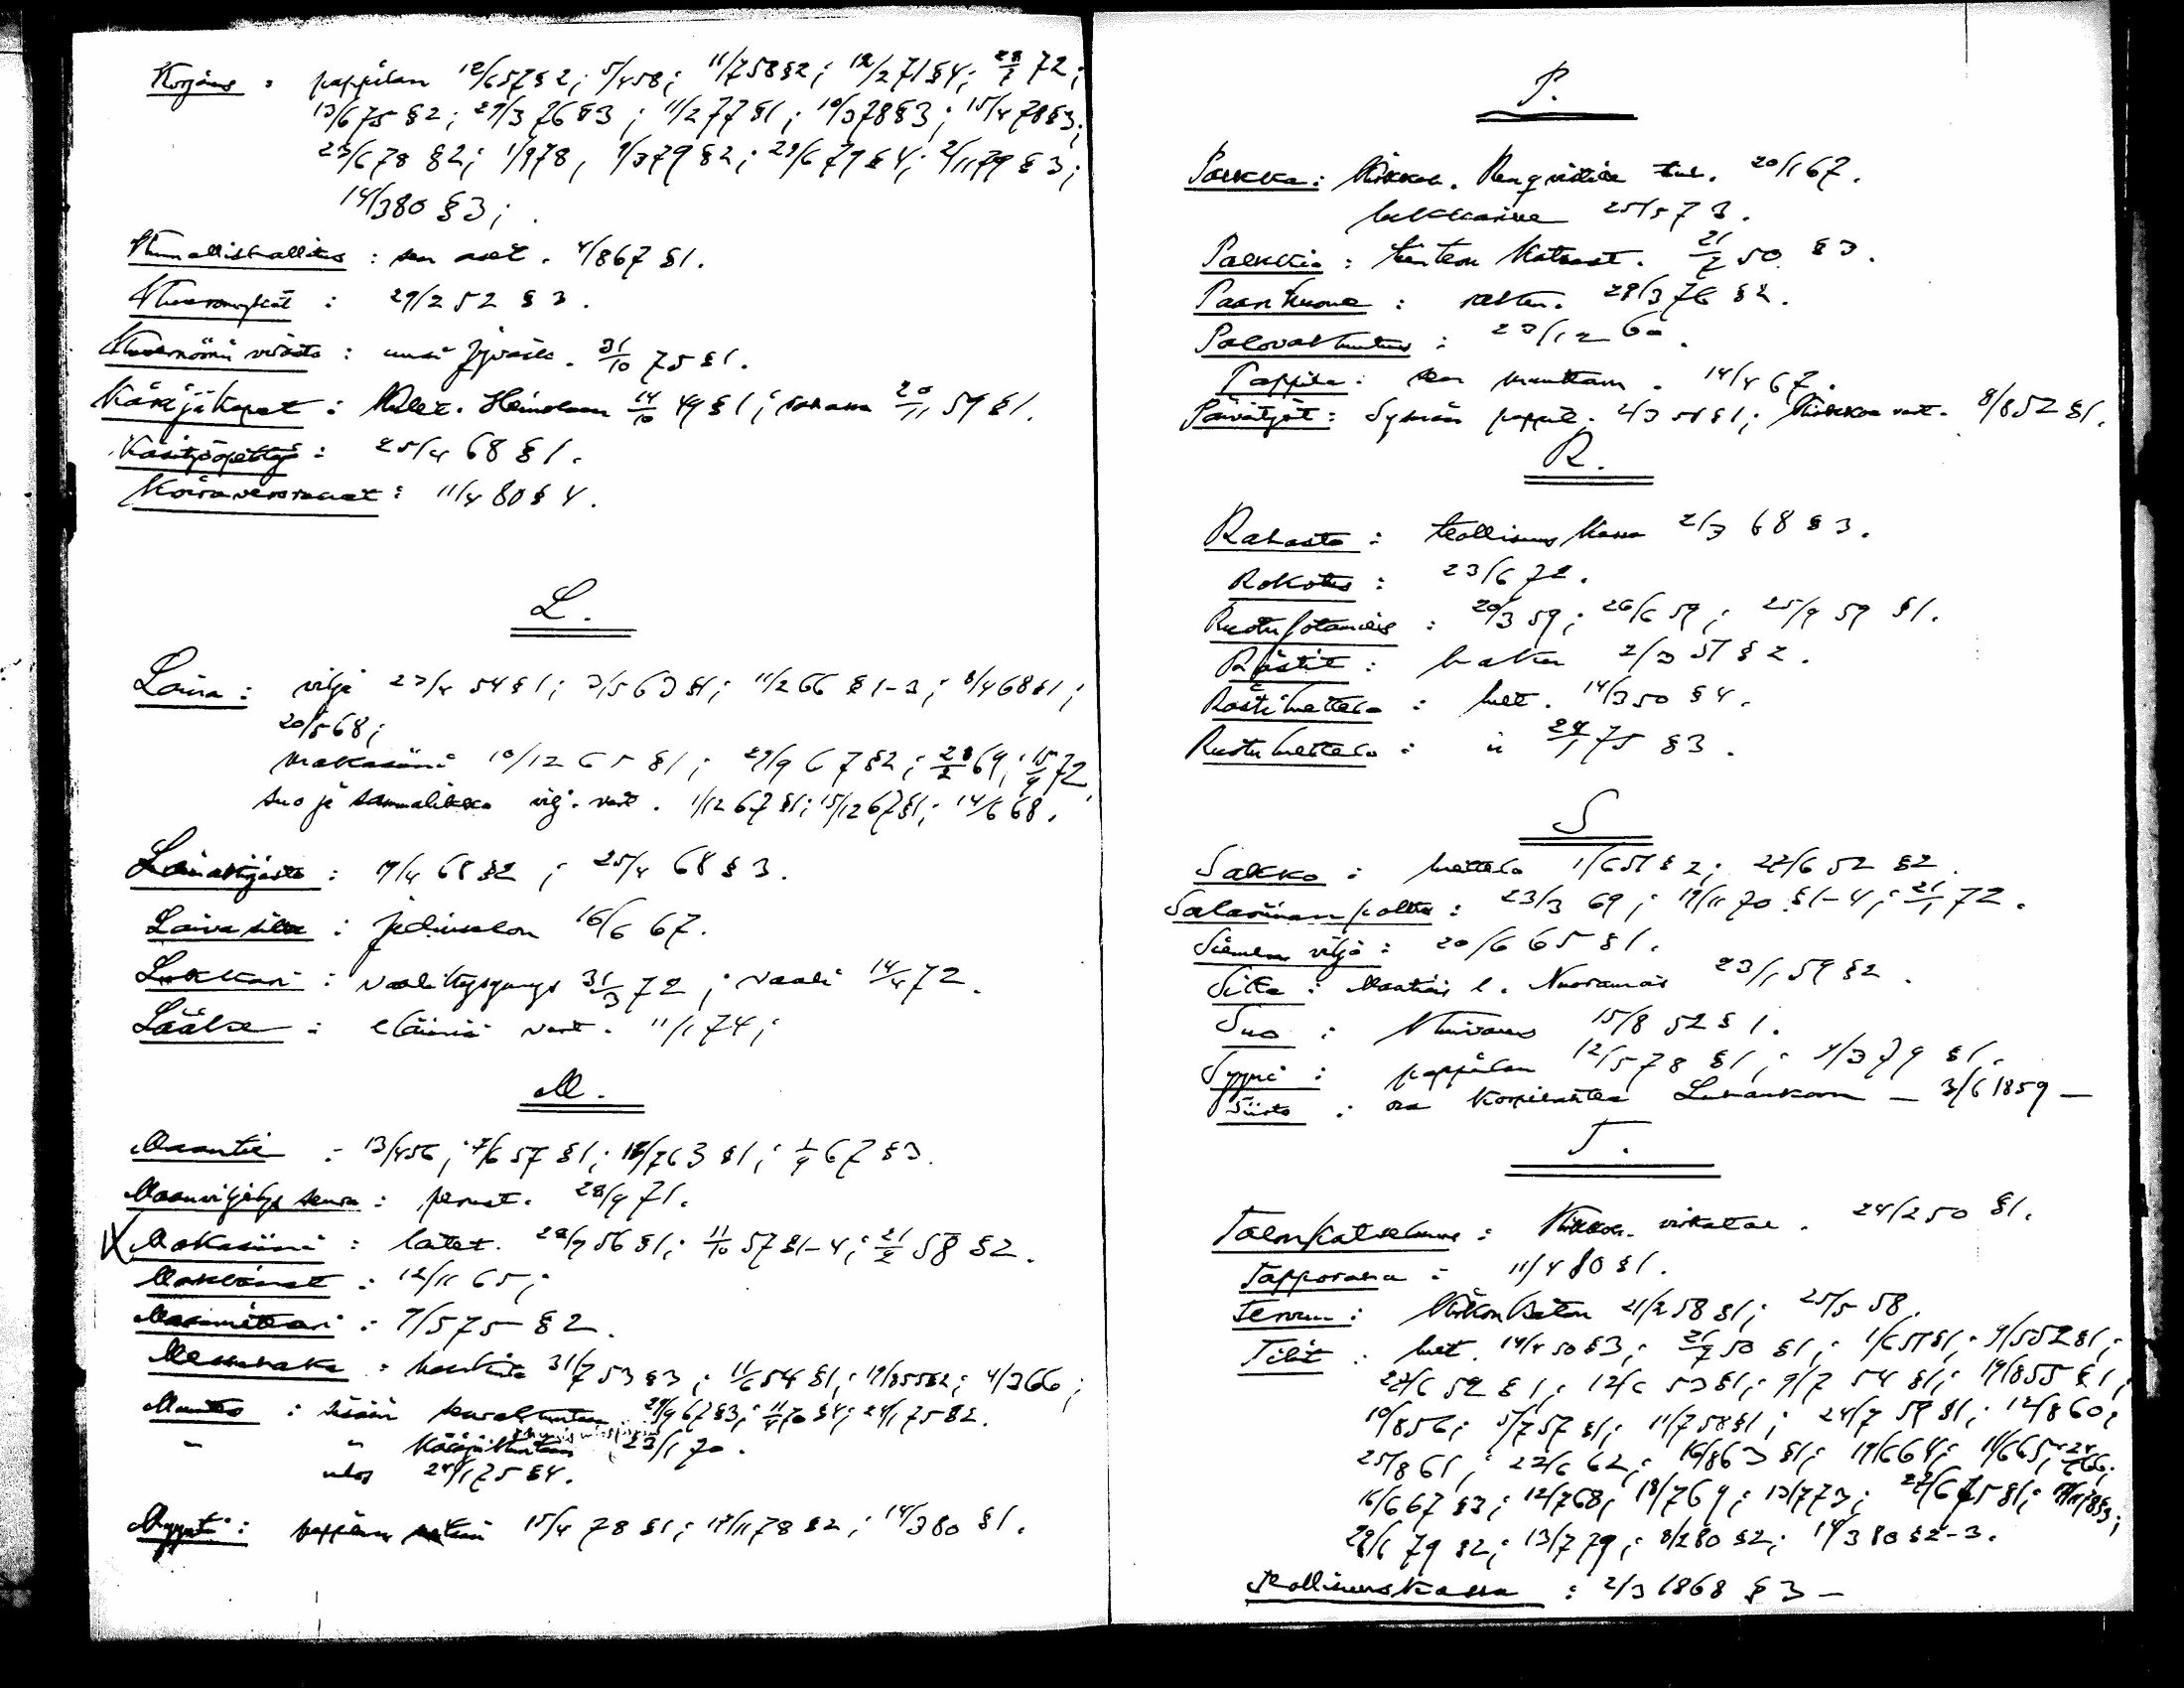 Korjaus : pappilan 12/6 57 § 2; 5/4 58; 11/7 58 § 2; 12/2 71 § 4; 28/2 72;
13/6 75 § 2; 29/3 76 § 3; 11/2 77 § 1; 10/3 78 § 3; 15/4 78 § 3;
23/6 78 § 2; 1/9 78, 9/3 79 § 2; 29/6 79 § 4; 2/11 79 § 3;
14/3 80 § 3;
Kunnallishallitus : sen aset. 4/8 67 § 1.
29/2 52 § 3.
Kuvernöörin virasto : uusi Jyväsk. 31/10 75 § 1.
Käräjäkapat : Heinolaan 14/10 49 § 1; 20/11 59 § 1.
Käsityöopettaja : 25/4 68 § 1.
Koiraverorahat : 11/4 80 § 4.
L.
Laina : vilja 23/4 54 § 1; 3/5 63 § 1; 11/2 66 § 1-3; 8/4 68 § 1;
20/5 68;
makasiini 10/12 65 § 1; 29/9 67 § 2; 28/2 69; 15/9 72
suo ja sammalikko vilj. vart. 1/12 67 § 1; 15/12 67 § 1; 14/6 68.
Lainakirjasto : 19/4 68 § 2; 25/4 68 § 3.
Laivasilta : 16/6 67.
Lukkari : vaalitapa 31/3 72; vaali 14/4 72.
Lääke : eläimiä vart. 11/1 74;
M.
Maantie : 13/4 56; 7/6 57 § 1; 12/7 63 § 1; 1/9 67 § 3.
Maanviljelys seura : perust. 28/9 71.
X Makasiini : laitet. 28/9 56 § 1; 11/10 57 § 1-4; 21/2 58 § 2.
12/11 65;
Maanmittari : 7/5 75 § 2.
Metsänhaka : 31/7 53 § 3; 11/6 54 § 1; 19/8 55 § 2; 4/3 66;
Muutto : sisään seurakuntaan 29/9 67 § 3; 11/4 70 § 4; 24/1 75 § 2.
" " 23/1 70.
ulos 24/1 75 § 4.
Myynti : pappilan 15/4 78 § 1; 12/11 78 § 2; 14/3 80 § 1.
P.
Palkka : Kirkkoh. Renqvistin 20/1 67.
lukkarin 25/5 73.
21/7 50 § 3.
Paarihuone : raken. 29/3 76 § 2.
Palovakuutus : 23/12 60.
Pappila : sen muuttam. 14/4 67.
Päivätyöt : Sysmän pappil. 2/3 51 § 1; Kirkkoa vart. 8/8 52 § 1.
R.
Rahasto : teollisuus kassa 2/3 68 § 3.
Rokotus : 23/6 72.
Ruotujotamies : 20/3 59; 26/6 59; 25/9 59 § 1.
Rästit : 2/3 51 § 2.
Rästiluettelo : luet. 14/3 50 § 4.
Ruotuluettelo : 24/1 75 § 3.
S
Sakko : luettelo 1/6 51 § 2; 22/6 52 § 2.
Salaviinan poltto : 23/3 69; 19/11 70 § 1-4; 21/1 72.
Siemen vilja : 20/6 65 § 1.
Silta : 23/1 59 § 2.
Suo : Kuivaus 15/8 52 § 1.
Syyni : pappilan 12/5 78 § 1; 9/3 79 § 1.
Siirto : osa Korpilahtea Luhankaan — 3/6 1859 —
T.
Talonkatselmus : Kirkkoh. virkatal. 24/2 50 § 1.
Tapporaha : 11/4 80 § 1.
Tervaus : Kirkon katon 21/2 58 § 1; 25/5 58.
Tilit : luet. 14/4 50 § 3; 21/7 50 § 1; 1/6 51 § 1; 9/5 52 § 1;
22/6 52 § 1; 12/6 53 § 1; 9/7 54 § 1; 19/8 55 § 1;
10/8 56; 5/7 57 § 1; 11/7 58 § 1; 24/7 59 § 1; 12/8 60;
25/8 61; 22/6 62; 16/8 63 § 1; 19/6 64; 11/6 65; 24/6 66;
16/6 67 § 3; 12/7 68; 18/7 69; 13/7 73; 22/6 75 § 1;
29/6 79 § 2; 13/7 79; 8/2 80 § 2; 14/3 80 § 2-3.
Teollisuuskassa : 2/3 1868 § 3 —